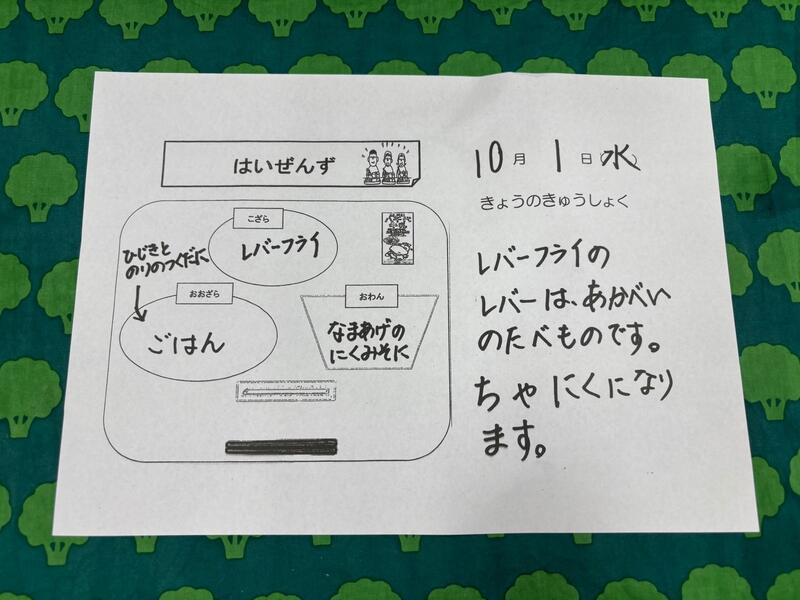 はいぜんず
こざら
レバーフライ
ひじきと
のりのつくだに
おおざら
ごはん
おわん
なまあげの
にくみそに
10月 1日(水)
きょうのきゅうしょく
レバーフライの
レバーは、あかべい
のたべものです。
ちゃ にくになり
ます。